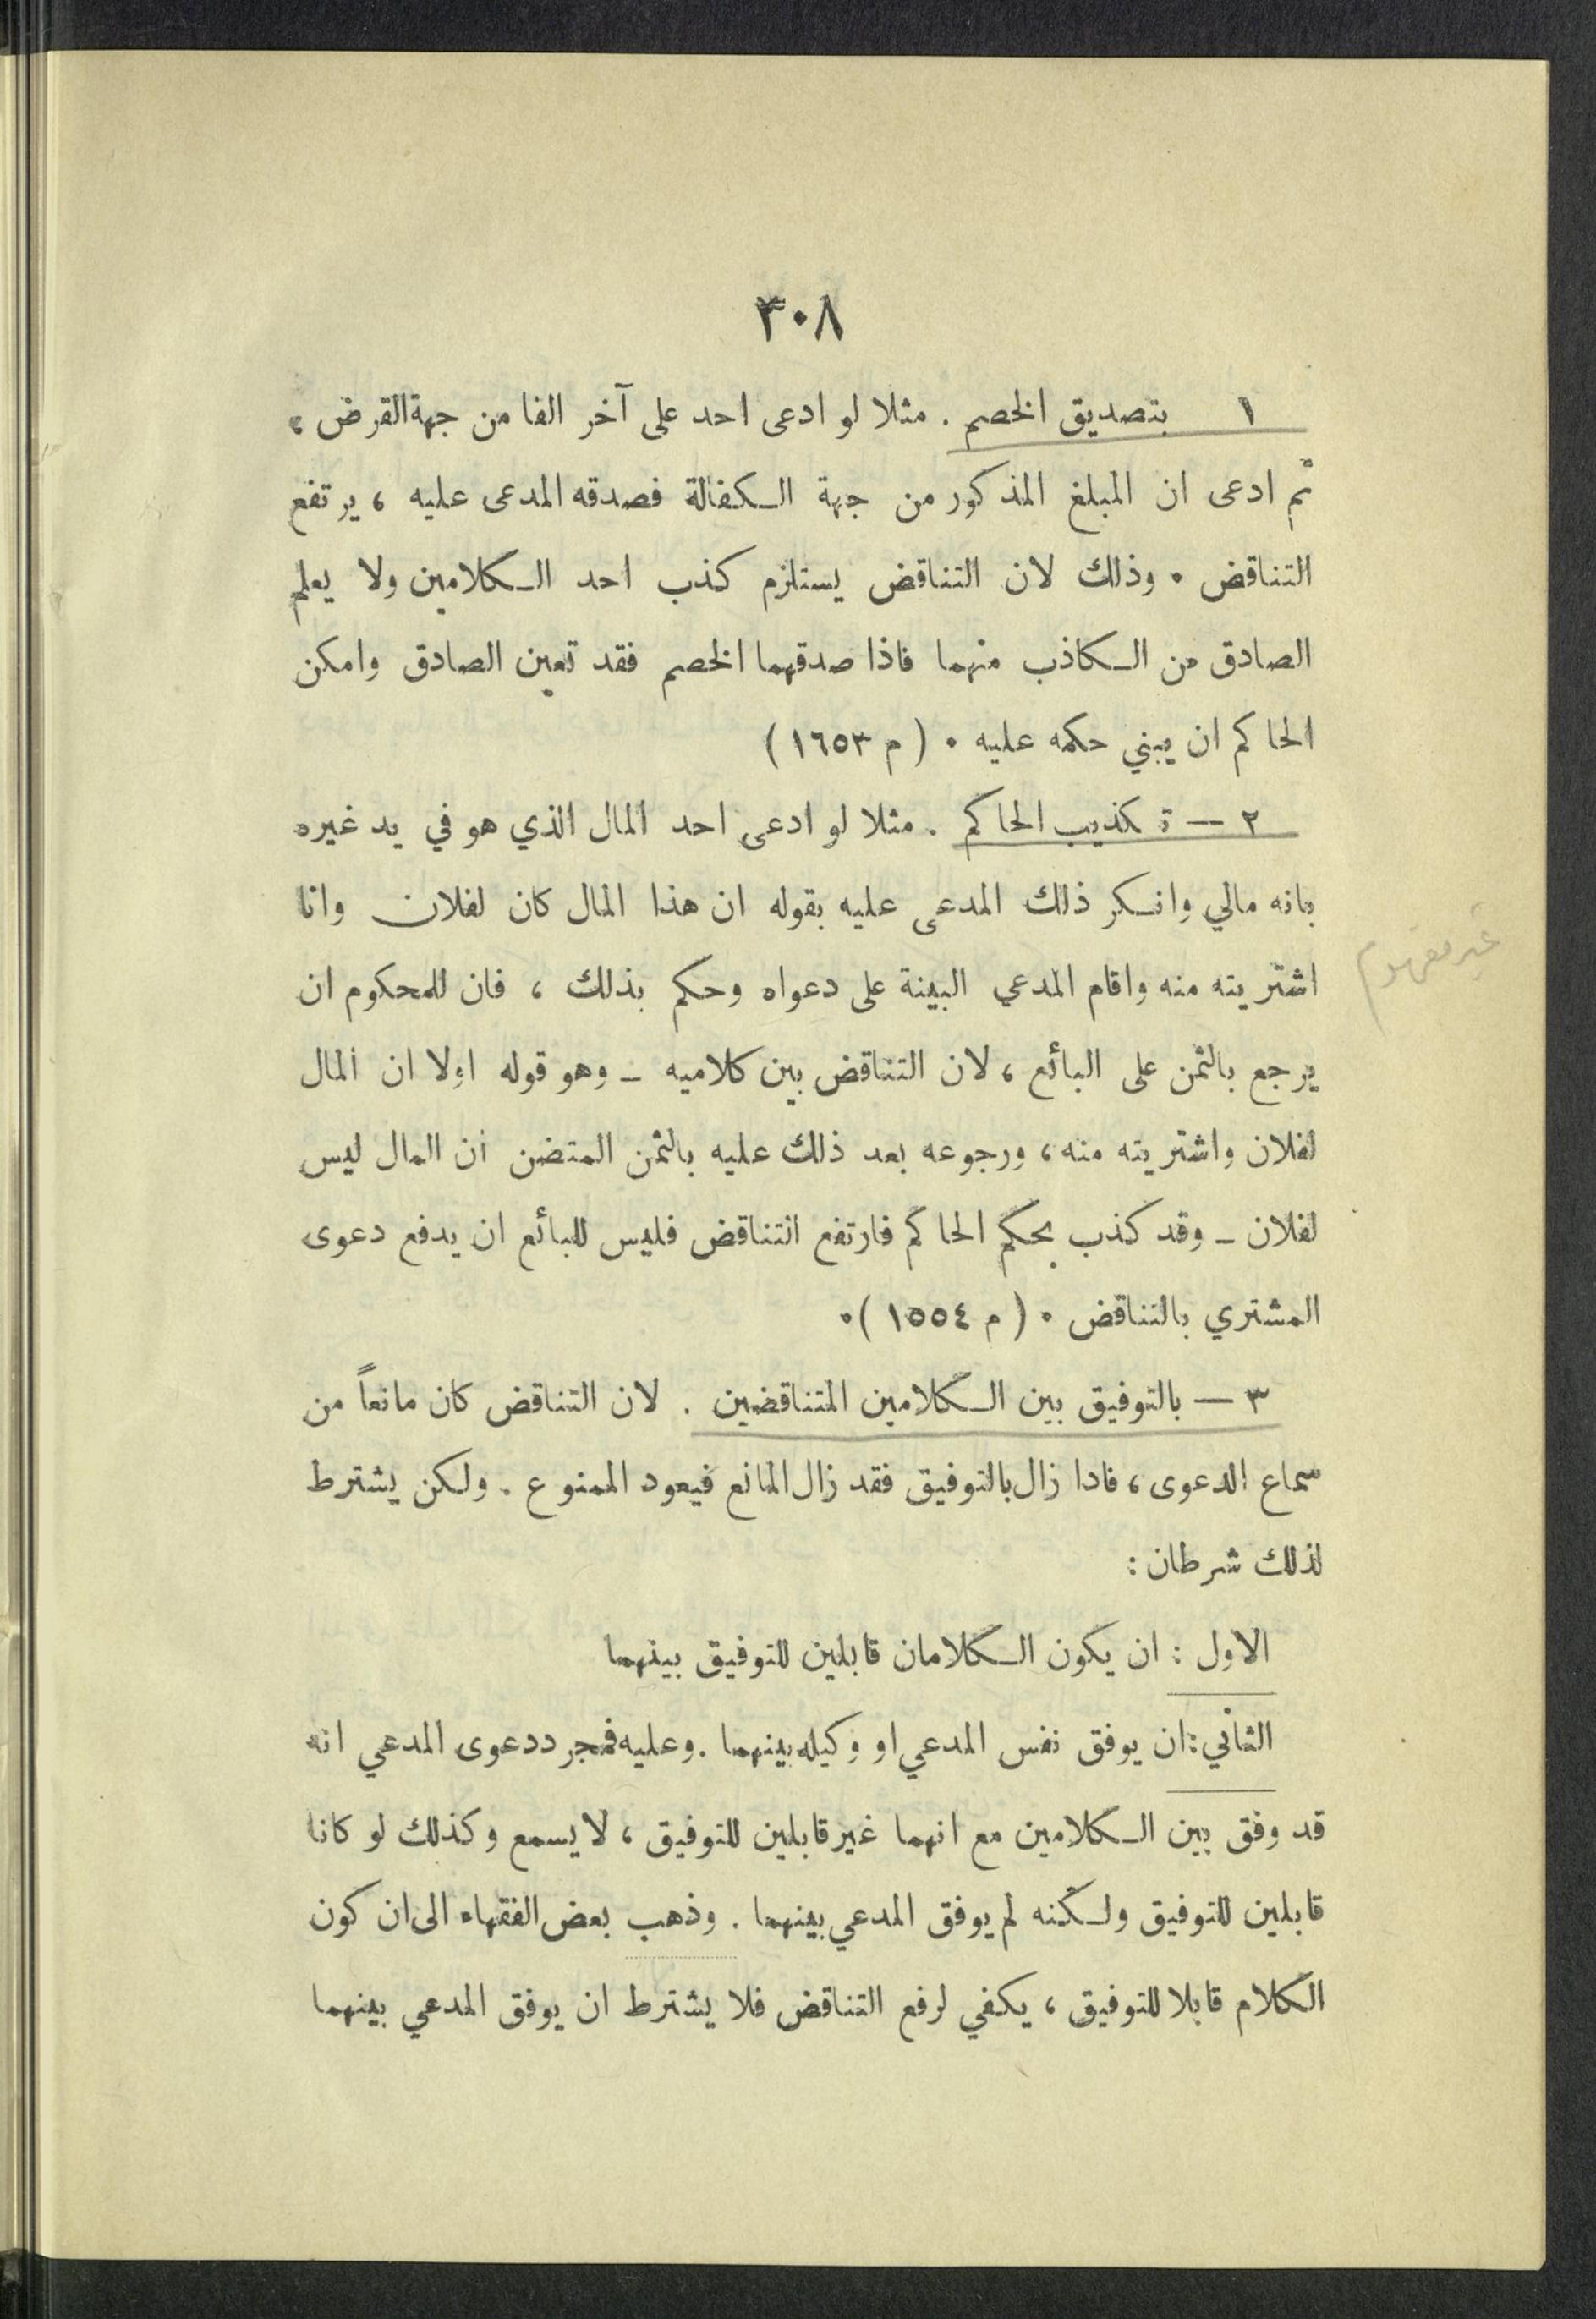 ٣٠٨
١ بتصديق الخصم . مثلا لو ادعى احد على آخر الفا من جهة القرض ،
ثم ادعى ان المبلغ المذكور من جهة الكفالة فصدقه المدعى عليه ، يرتفع
التناقض . وذلك لان التناقض يستلزم كذب احد الكلامين ولا يعلم
الصادق من الكاذب منهما فاذا صدقهما الخصم فقد تعين الصادق وامكن
الحاكم ان يبني حكمه عليه . ( م ١٦٥٣ )
٢ — تكذيب الحاكم . مثلا لو ادعى احد المال الذي هو في يد غيره
بانه مالي وانكر ذلك المدعى عليه بقوله ان هذا المال كان لفلان وانا
غير مفهوم
اشتريته منه واقام المدعي البينة على دعواه وحكم بذلك ، فان للمحكوم ان
يرجع بالثمن على البائع ، لان التناقض بين كلاميه – وهو قوله اولا ان المال
لفلان واشتريته منه ، ورجوعه بعد ذلك عليه بالثمن المتضن ان المال ليس
لفلان – وقد كذب بحكم الحاكم فارتفع التناقض فليس للبائع ان يدفع دعوى
المشتري بالتناقض . ( م ١٥٥٤ ) .
٣ — بالتوفيق بين الكلامين المتناقضين . لان التناقض كان مانعاً من
سماع الدعوى ، فادا زال بالتوفيق فقد زال المانع فيعود الممنوع . ولكن يشترط
لذلك شرطان :
الاول : ان يكون الكلامان قابلين للتوفيق بينهما
الثاني : ان يوفق نفس المدعي او وكيله بينهما . وعليه فمجرد دعوى المدعي انه
قد وفق بين الكلامين مع انهما غير قابلين للتوفيق ، لا يسمع وكذلك لو كانا
قابلين للتوفيق ولكنه لم يوفق المدعي بينهما . وذهب بعض الفقهاء الى ان كون
الكلام قابلا للتوفيق ، يكفي لرفع التناقض فلا يشترط ان يوفق المدعي بينهما